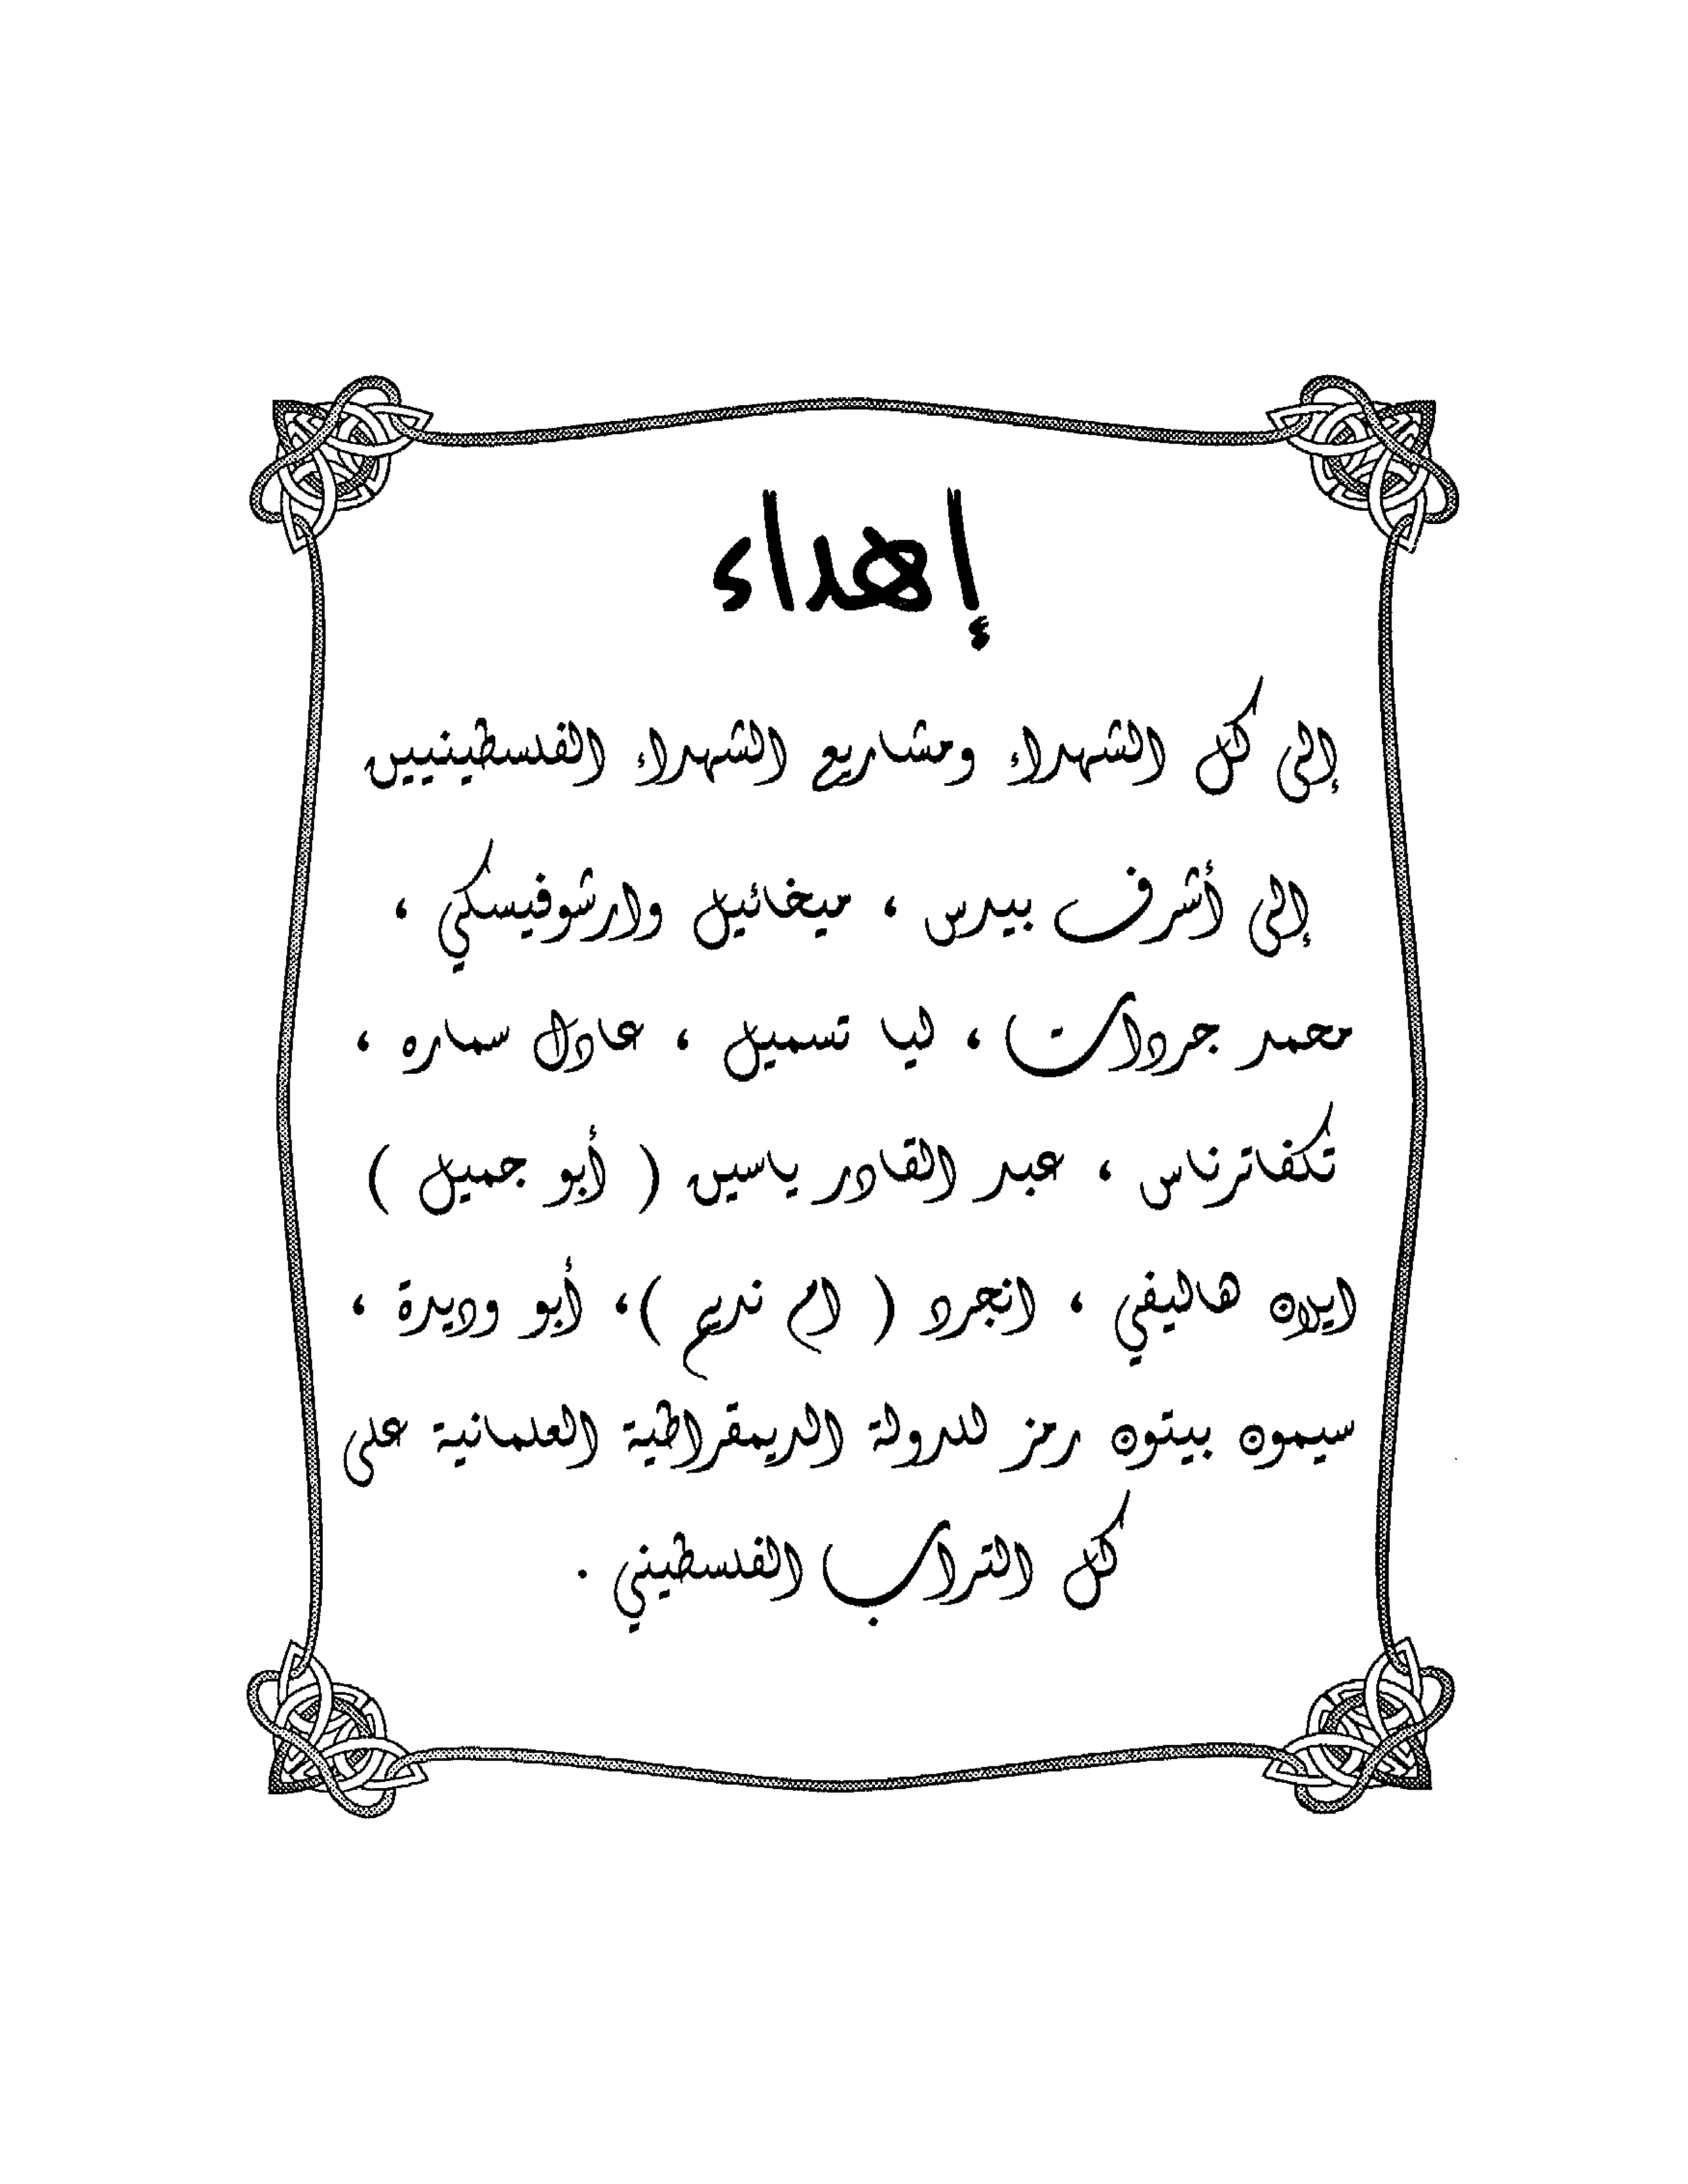 إهداء
إلى كل الشهداء ومشاريع الشهداء الفلسطينيين
إلى أشرف بيدس ، ميخائيل وارشوفيسكي ،
محمد جردات ، ليا تسميل ، عادل سماره ،
تكفاترناس ، عبد القادر ياسين ( أبو جميل )
ايلان هاليفي ، انجرد ( ام نديم )، أبو وديدة ،
سيمون بيتون رمز للدولة الديمقراطية العلمانية على
كل التراب الفلسطيني .